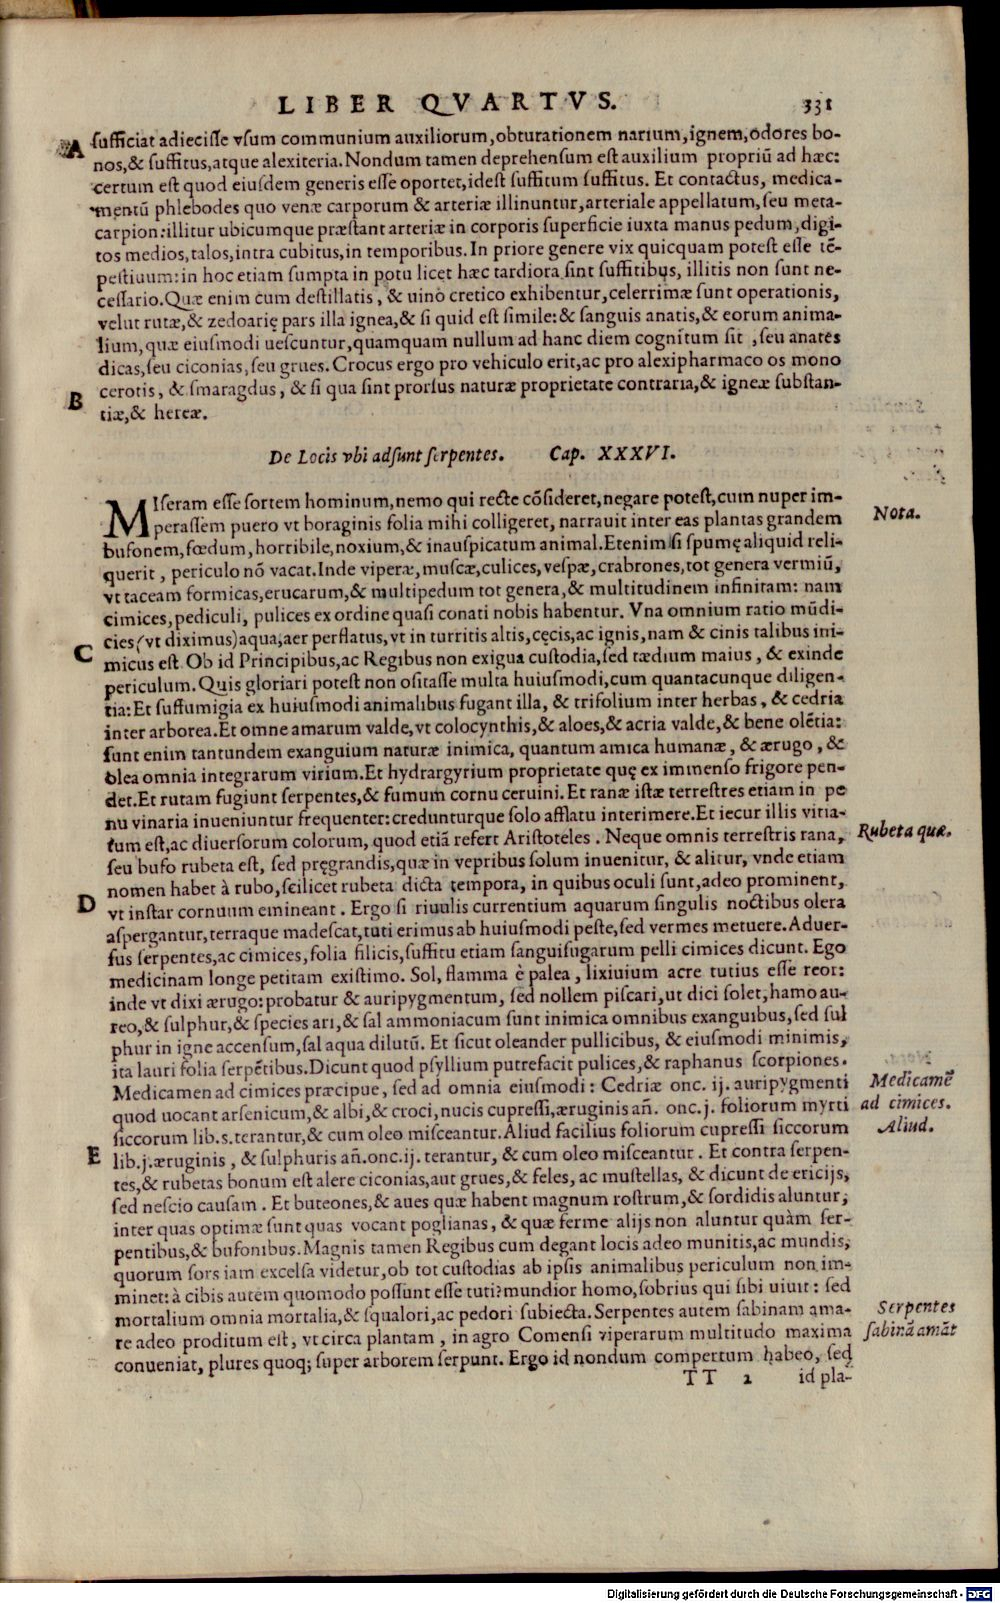 LIBER QVARTVS. 331
A sufficiat adiecisse vsum communium auxiliorum, obturationem narium, ignem, odores bo-
nos, & suffitus, atque alexiteria. Nondum tamen deprehensum est auxilium propriũ ad hæc:
certum est quod eiusdem generis esse oportet, idest suffitum suffitus. Et contactus, medica-
mentũ phlebodes quo venæ carporum & arteriæ illinuntur, arteriale appellatum, seu meta-
carpion: illitur ubicumque præstant arteriæ in corporis superficie iuxta manus pedum, digi-
tos medios, talos, intra cubitus, in temporibus. In priore genere vix quicquam potest esse tẽ-
pestiuum: in hoc etiam sumpta in potu licet hæc tardiora sint suffitibus, illitis non sunt ne-
cessario. Quæ enim cum destillatis, & uino cretico exhibentur, celerrimæ sunt operationis,
velut rutæ, & zedoarię pars illa ignea, & si quid est simile: & sanguis anatis, & eorum anima-
lium, quæ eiusmodi uescuntur, quamquam nullum ad hanc diem cognitum sit, seu anates
dicas, seu ciconias, seu grues. Crocus ergo pro vehiculo erit, ac pro alexipharmaco os mono
cerotis, & smaragdus, & si qua sint prorsus naturæ proprietate contraria, & igneæ substan-
B tiæ, & hereæ.
De Locis vbi adsunt serpentes. Cap. XXXVI.
MIseram esse sortem hominum, nemo qui recte cõsideret, negare potest, cum nuper im-
perassem puero vt boraginis folia mihi colligeret, narrauit inter eas plantas grandem
Nota.
bufonem, fœdum, horribile, noxium, & inauspicatum animal. Etenim si spumę aliquid reli-
querit, periculo nõ vacat. Inde viperæ, muscæ, culices, vespæ, crabrones, tot genera vermiũ,
vt taceam formicas, erucarum, & multipedum tot genera, & multitudinem infinitam: nam
cimices, pediculi, pulices ex ordine quasi conati nobis habentur. Vna omnium ratio mũdi-
C cies (vt diximus) aqua, aer perflatus, vt in turritis altis, cęcis, ac ignis, nam & cinis talibus ini-
micus est. Ob id Principibus, ac Regibus non exigua custodia, sed tædium maius, & exinde
periculum. Quis gloriari potest non ositasse multa huiusmodi, cum quantacunque diligen-
tia: Et suffumigia ex huiusmodi animalibus fugant illa, & trifolium inter herbas, & cedria
inter arborea. Et omne amarum valde, vt colocynthis, & aloes, & acria valde, & bene olẽtia:
sunt enim tantundem exanguium naturæ inimica, quantum amica humanæ, & ærugo, &
olea omnia integrarum virium. Et hydrargyrium proprietate quę ex immenso frigore pen-
det. Et rutam fugiunt serpentes, & fumum cornu ceruini. Et ranæ istæ terrestres etiam in pe
nu vinaria inueniuntur frequenter: credunturque solo afflatu interimere. Et iecur illis vitia-
tum est, ac diuersorum colorum, quod etiã refert Aristoteles. Neque omnis terrestris rana,
Rubeta quæ.
seu bufo rubeta est, sed pręgrandis, quæ in vepribus solum inuenitur, & alitur, vnde etiam
nomen habet à rubo, scilicet rubeta dicta tempora, in quibus oculi sunt, adeo prominent,
D vt instar cornuum emineant. Ergo si riuulis currentium aquarum singulis noctibus olera
aspergantur, terraque madescat, tuti erimus ab huiusmodi peste, sed vermes metuere. Aduer-
sus serpentes, ac cimices, folia filicis, suffitu etiam sanguisugarum pelli cimices dicunt. Ego
medicinam longe petitam existimo. Sol, flamma è palea, lixiuium acre tutius esse reor:
inde vt dixi ærugo: probatur & auripygmentum, sed nollem piscari, ut dici solet, hamo au-
reo, & sulphur, & species ari, & sal ammoniacum sunt inimica omnibus exanguibus, sed sul
phur in igne accensum, sal aqua dilutũ. Et sicut oleander pullicibus, & eiusmodi minimis,
ita lauri folia serpẽtibus. Dicunt quod psyllium putrefacit pulices, & raphanus scorpiones.
Medicamen ad cimices præcipue, sed ad omnia eiusmodi: Cedriæ onc. ij. auripygmenti
Medicamẽ
quod uocant arsenicum, & albi, & croci, nucis cupressi, æruginis añ. onc. j. foliorum myrti
ad cimices.
siccorum lib. s. terantur, & cum oleo misceantur. Aliud facilius foliorum cupressi siccorum
Aliud.
E lib. j. æruginis, & sulphuris añ. onc. ij. terantur, & cum oleo misceantur. Et contra serpen-
tes, & rubetas bonum est alere ciconias, aut grues, & feles, ac mustellas, & dicunt de ericijs,
sed nescio causam. Et buteones, & aues quæ habent magnum rostrum, & sordidis aluntur,
inter quas optimæ sunt quas vocant poglianas, & quæ ferme alijs non aluntur quàm ser-
pentibus, & bufonibus. Magnis tamen Regibus cum degant locis adeo munitis, ac mundis,
quorum sors iam excelsa videtur, ob tot custodias ab ipsis animalibus periculum non im-
minet: à cibis autem quomodo possunt esse tuti? mundior homo, sobrius qui sibi uiuit: sed
mortalium omnia mortalia, & squalori, ac pedori subiecta. Serpentes autem sabinam ama-
Serpentes
re adeo proditum est, vt circa plantam, in agro Comensi viperarum multitudo maxima
sabinã amãt
conueniat, plures quoq; super arborem serpunt. Ergo id nondum compertum habeo, sed
TT 2 id pla-
Digitalisierung gefördert durch die Deutsche Forschungsgemeinschaft - DFG